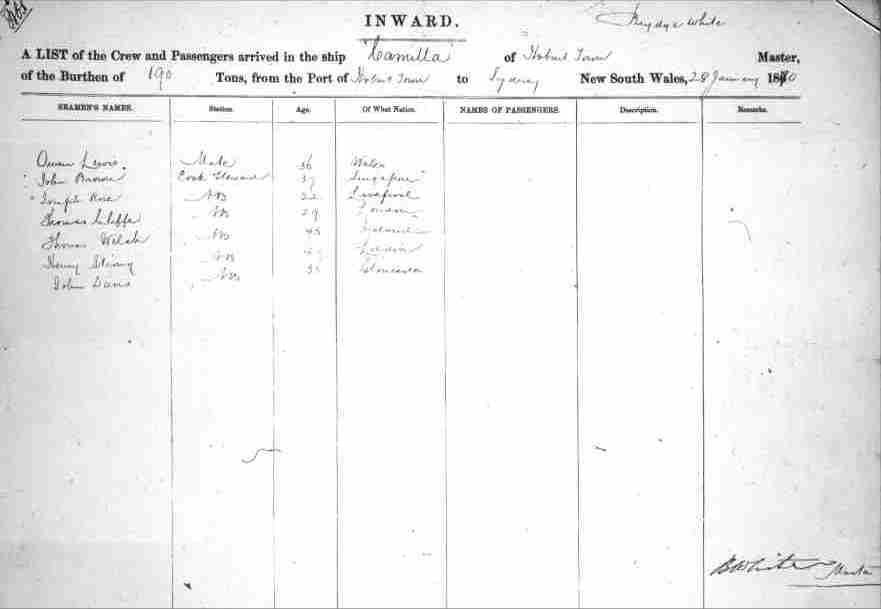 INWARD.
White
A LIST of the Crew and Passengers arrived in the ship Camilla of Hobart Town Master,
of the Burthen of 190 Tons, from the Port of Hobart Town to Sydney New South Wales, 28 January 18
SEAMEN'S NAMES. Station. Age. Of What Nation. NAMES OF PASSENGERS. Description. Remarks.
Owen Lewis Mate 36 Wales
John Brown Cook Steward 37 Singapore
Joseph Rose AB 22 Liverpool
Thomas AB 29 London
Thomas Welsh AB 45 Ireland
Henry AB London
John Davis AB Gloucester
B White Master